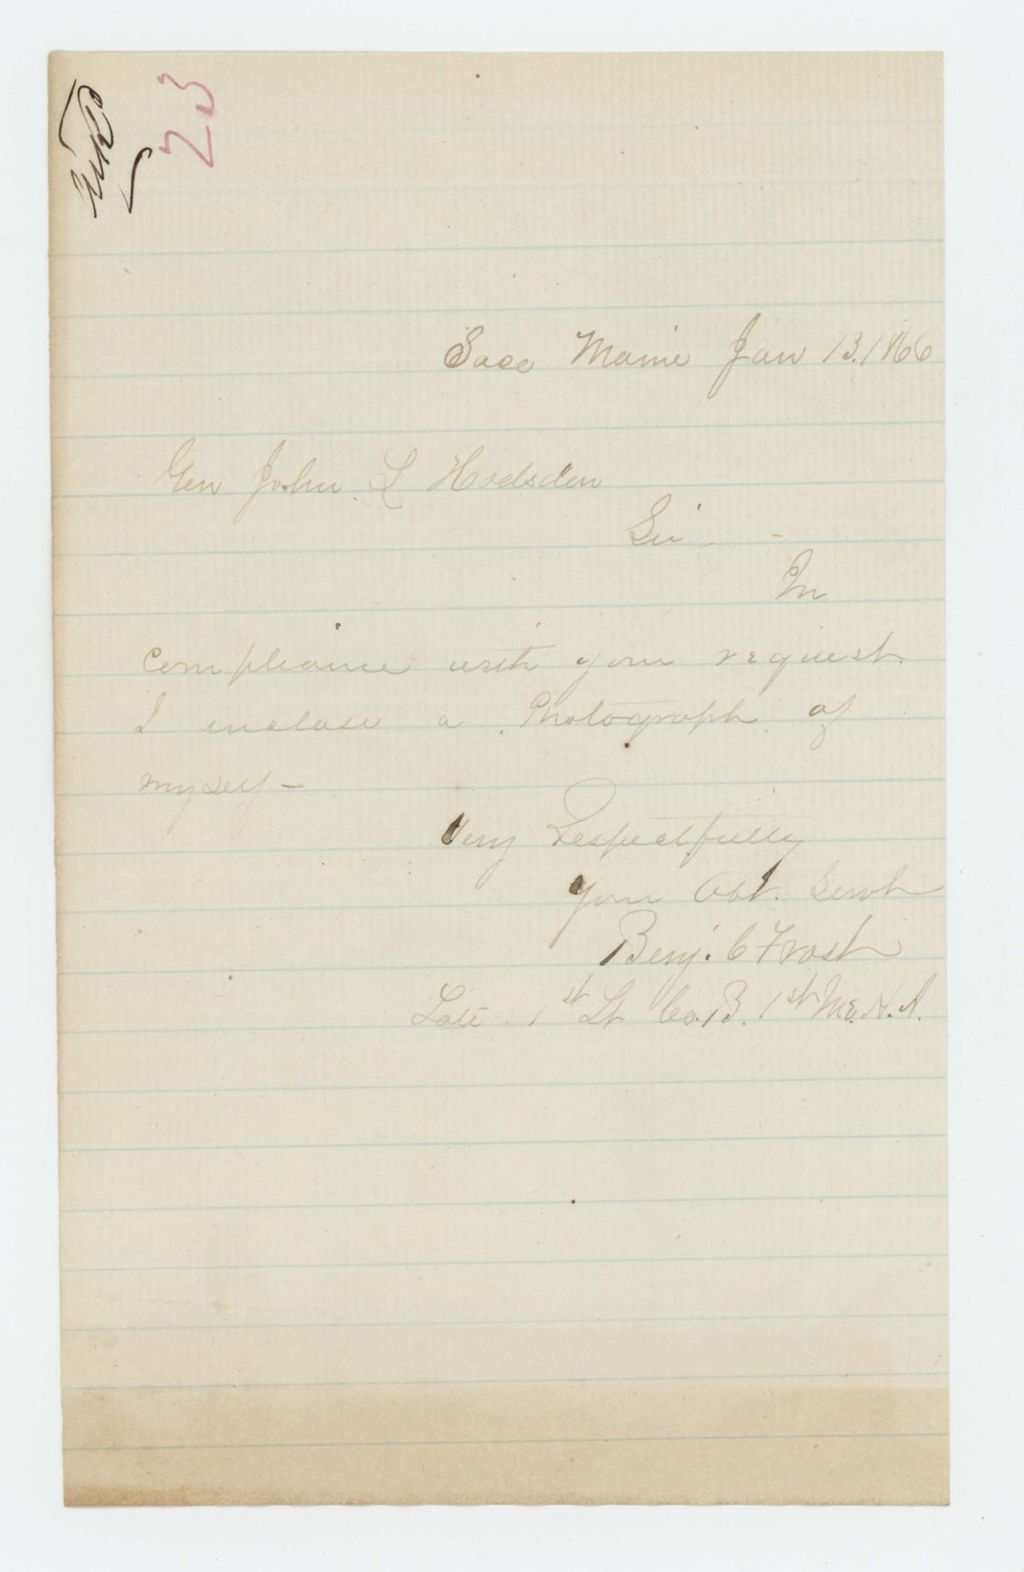 23
Saco Maine Jan 13. 1866
Gen John L Hodsdon
Sir -
In
compliance with your request
I inclose a Photograph of
myself -
Very Respectfully
Your Obt. Servt
Benj. C Frost
Late 1st Lt Co. B. 1st Me. H. A.